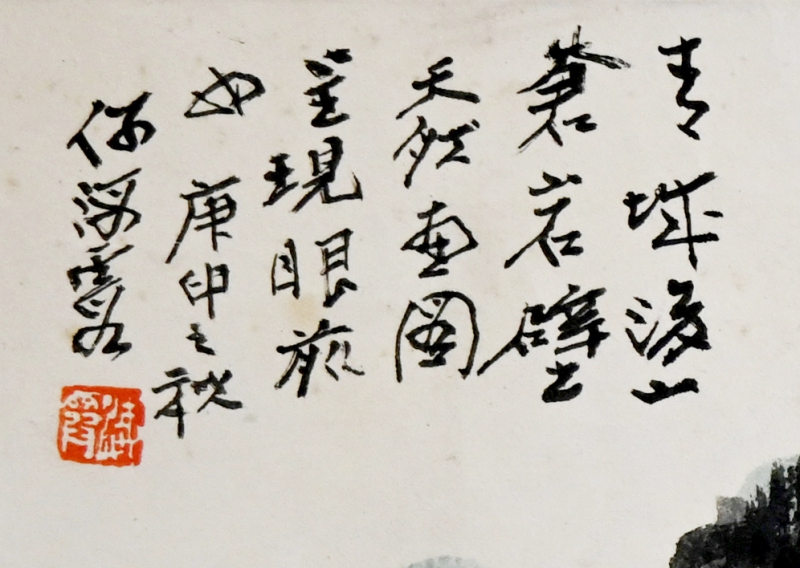 青城後山
蒼岩壁
天然畫圖
呈現眼前
也 庚申之秋
何海霞
海霞